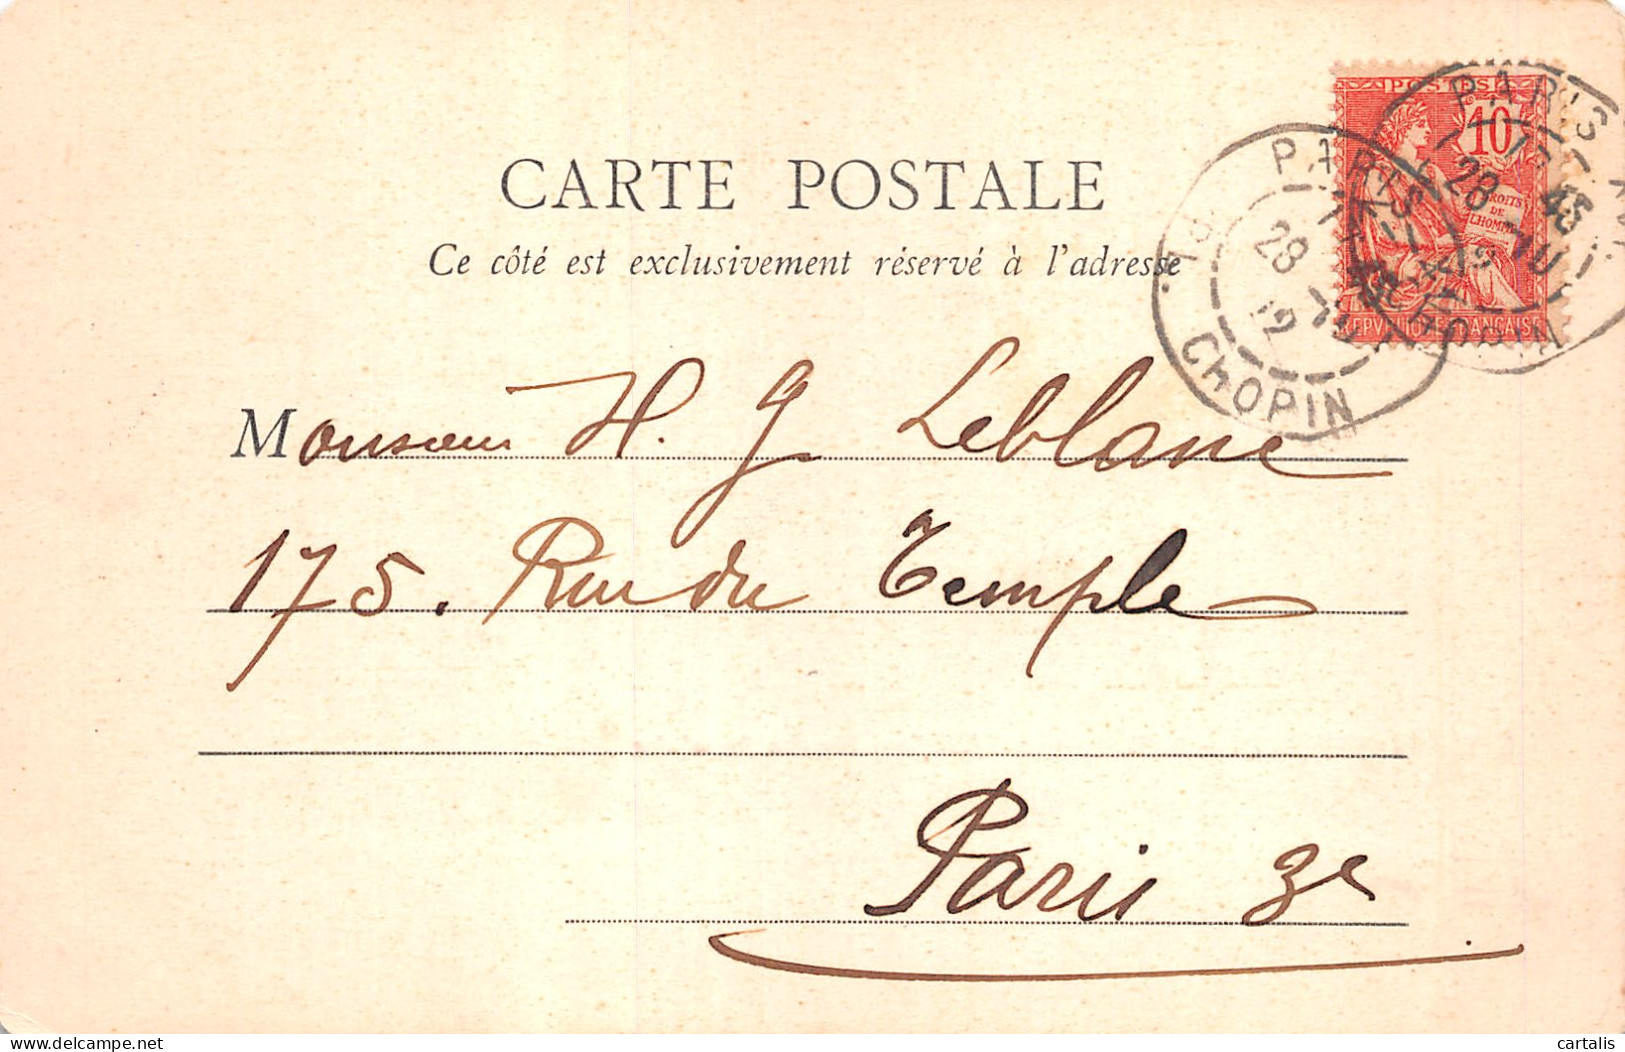 POSTES
10
DROITS
DE
L'HOMME
REPVBLIQVE FRANÇAISE
PARIS
28
12
CHOPIN
PARIS
28
45
12
CHOPIN
CARTE POSTALE
Ce côté est exclusivement réservé à l'adresse
Monsieur H. G. Leblanc
175. Rue du Temple
Paris 3e
cartalis
delcampe.net